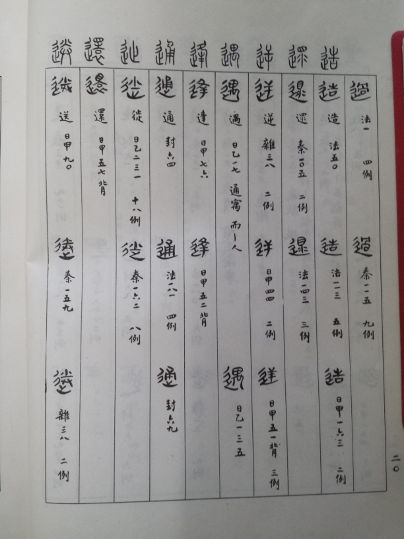 過 法一 四例 過 秦一一五 九例
造 造 造 法五〇 造 法一一三 五例 造 日甲一六三 二例
遝 遝 秦一〇五 二例 遝 法一四三 三例
逆 逆 逆 雜三八 二例 逆 日甲四四 二例 逆 日甲五一背 三例
遇 遇 遇 日乙一七 通寓 而丨人 遇 日乙一三五
逢 逢 逢 日甲七六 逢 日甲五二背
通 通 通 封六四 通 法一八一 四例 通 封六九
徙 徙 徙 日乙二三一 十八例 徙 秦一六二 八例
還 還 還 日甲五七背
送 送 送 日甲九〇 送 秦一五九 送 雜三八 二例
二〇